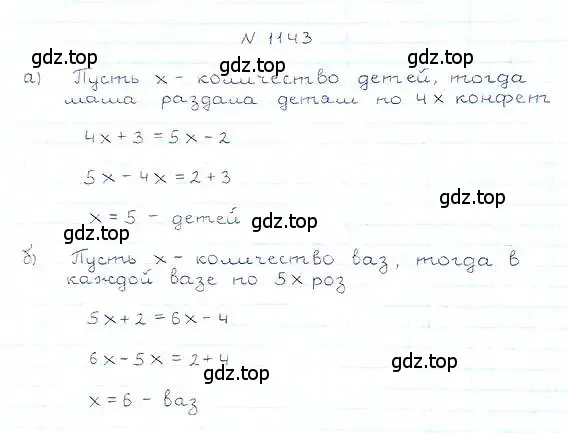 N 1143
gdz.top
gdz.top
а) Пусть x - количество детей, тогда
мама раздала детям по 4x конфет
gdz.top
4x + 3 = 5x - 2
5x - 4x = 2 + 3
gdz.top
x = 5 - детей
gdz.top
gdz.top
б) Пусть x - количество ваз, тогда в
каждой вазе по 5x роз
gdz.top
5x + 2 = 6x - 4
6x - 5x = 2 + 4
gdz.top
gdz.top
x = 6 - ваз